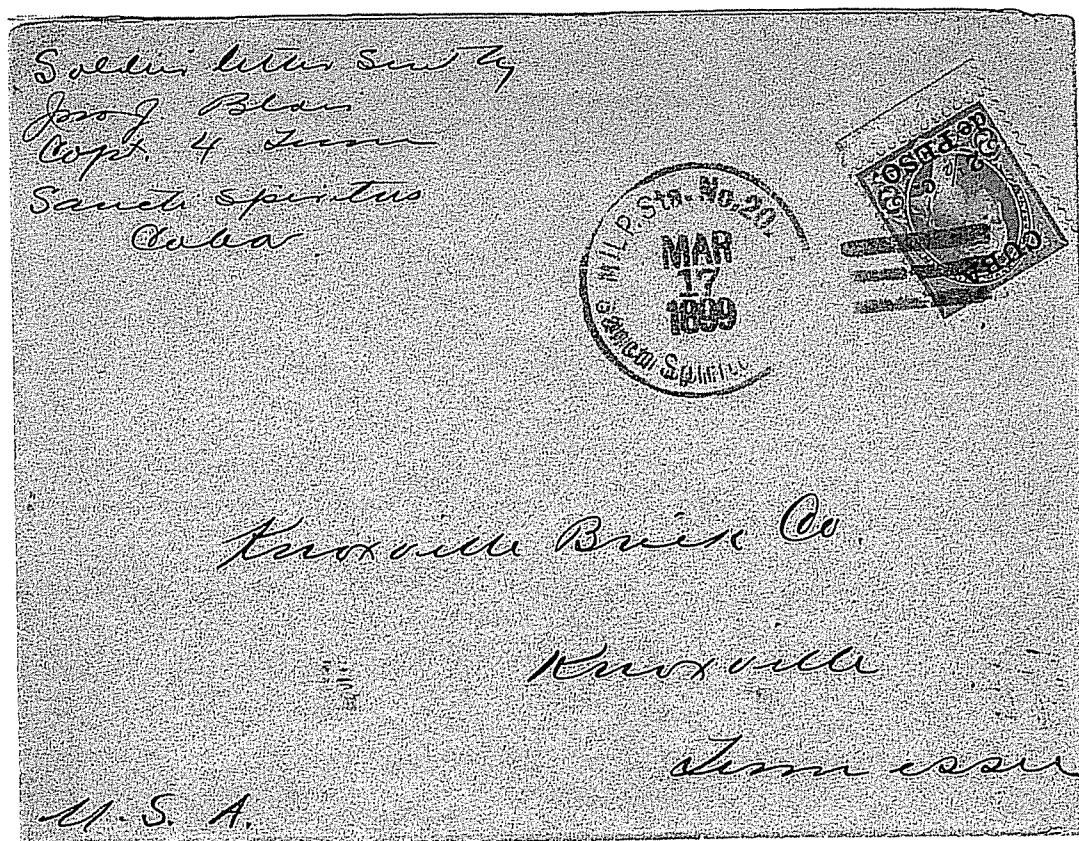 Soldiers letter sent by
Jno J Blair
Capt. 4 Tenn
Sancti Spiritus
Cuba
MIL. P. Sta. No. 20.
MAR
17
1899
Sancti Spiritu
CUBA
de PESO
Knoxville Brick Co.
Knoxville
Tennessee
U. S. A.